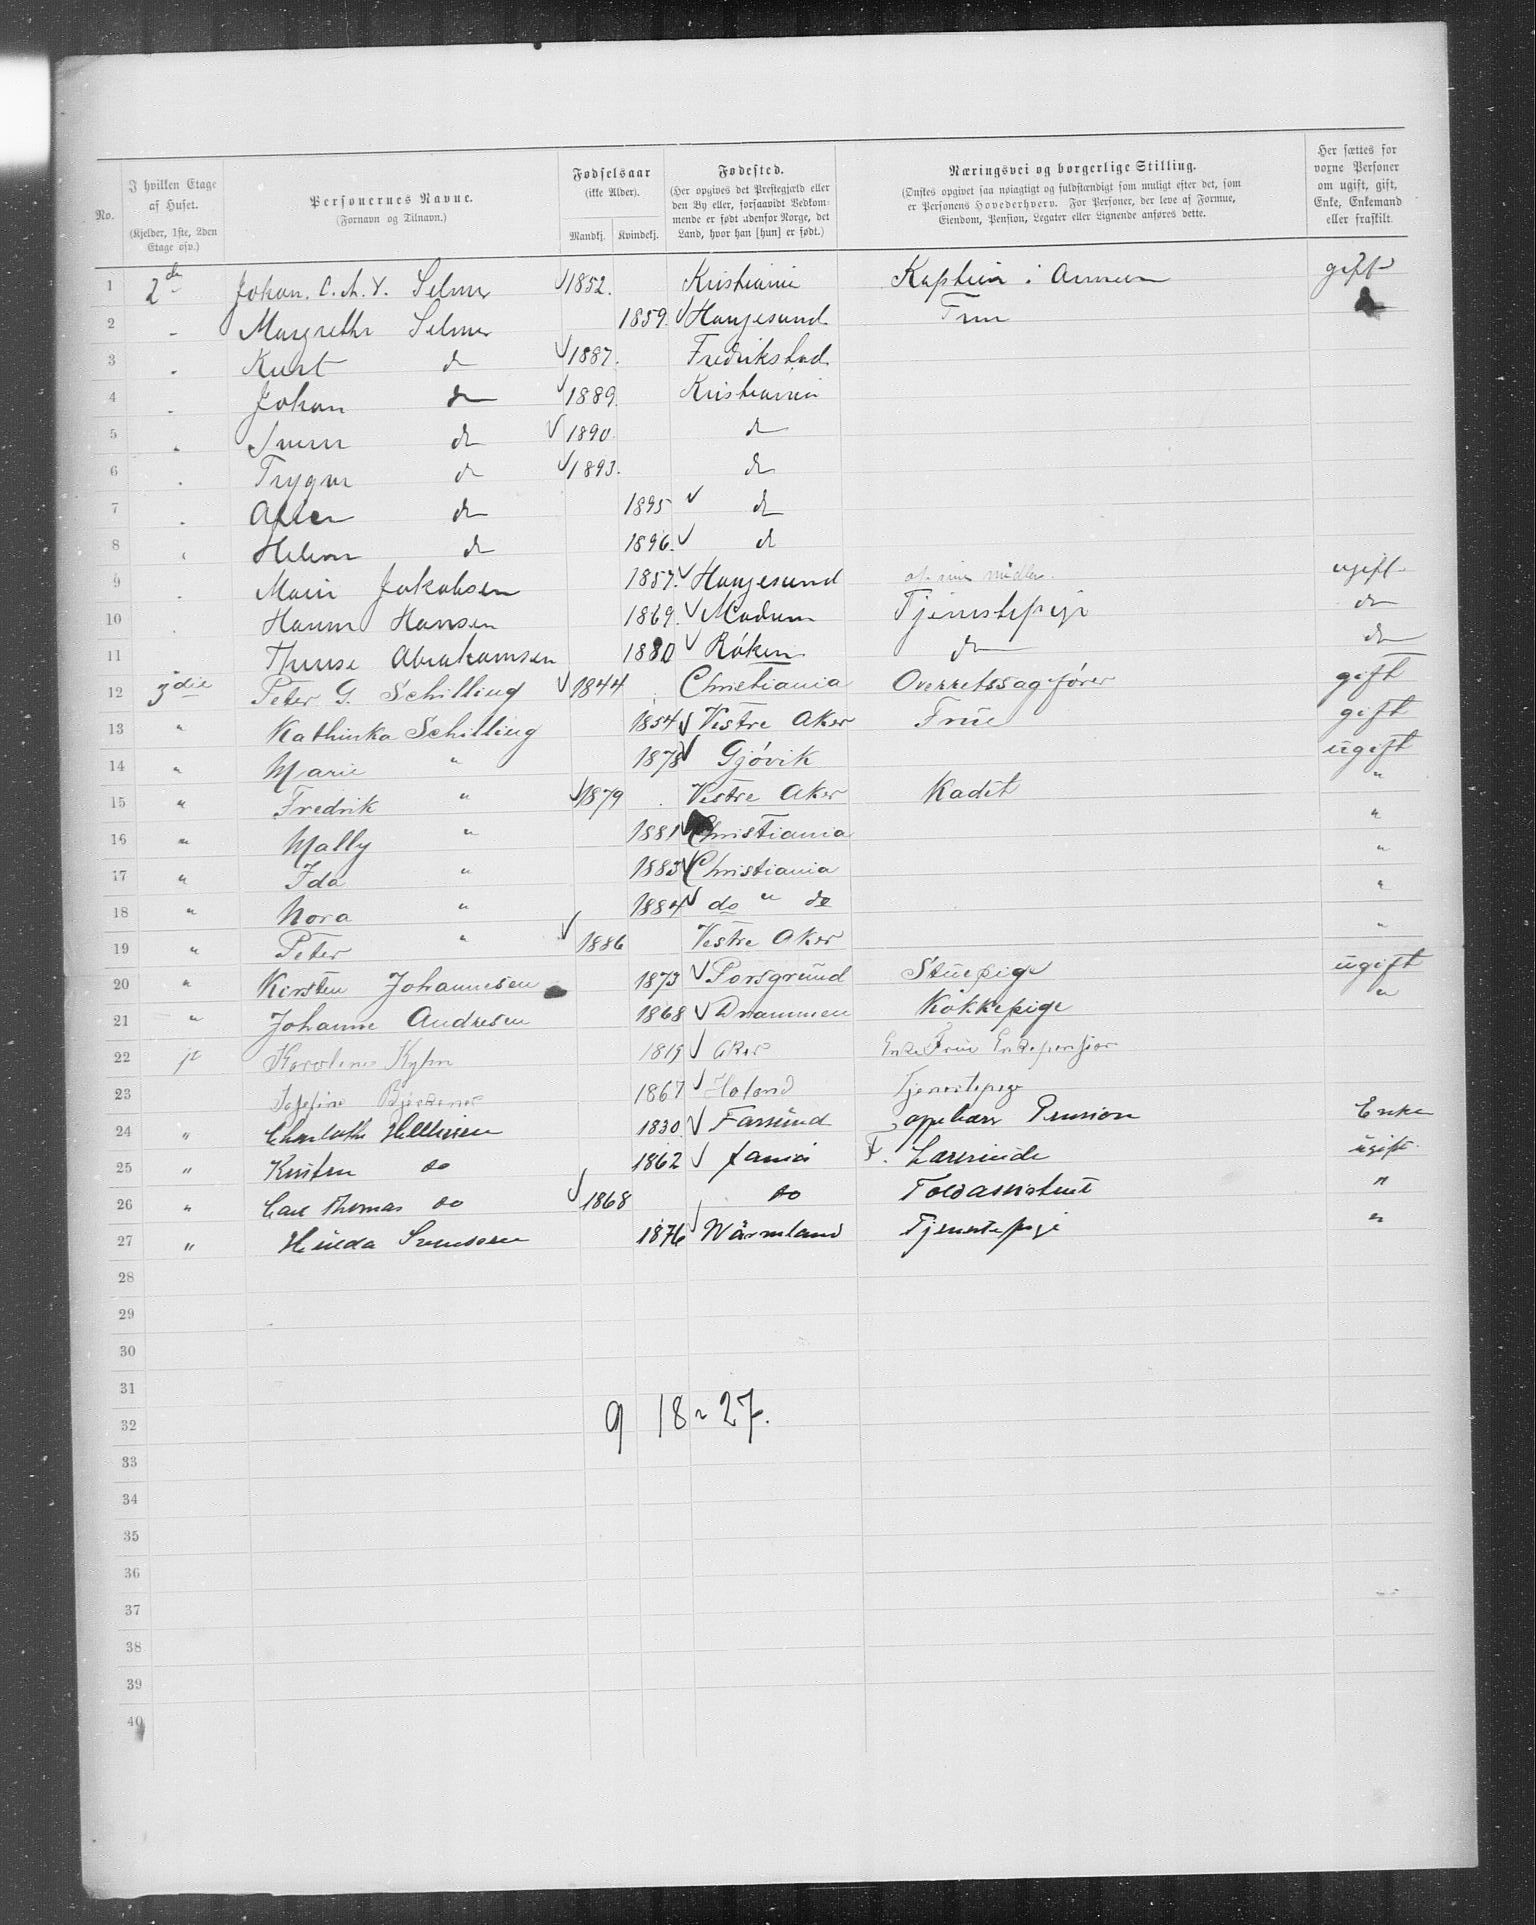 No. | I hvilken Etage af Huset. (Kjelder, 1ste, 2den Etage osv.) | Personernes Navne. (Fornavn og Tilnavn.) | Fødselsaar (ikke Alder). Mandkj. Kvindekj. | Fødested. (Her opgives det Prestegjæld eller den By eller, forsaavidt Vedkommende er født udenfor Norge, det Land, hvor han [hun] er født.) | Næringsvei og borgerlige Stilling. (Ønskes opgivet saa nøiagtigt og fuldstændigt som muligt efter det, som er Personens Hovederhverv. For Personer, der leve af Formue, Eiendom, Pension, Legater eller Lignende anføres dette.) | Her sættes for voxne Personer om ugift, gift, Enke, Enkemand eller fraskilt.
1 2de Johan. C. A. V. Selmer 1852. Kristiania Kaptein i Armeen gift
2 " Margrethe Selmer 1859. Haugesund Frue
3 " Kurt do 1887. Fredrikstad
4 " Johan do 1889. Kristiania
5 " do 1890. do
6 " Trygve do 1893. do
7 " do 1895 do
8 " do 1896. do
9 " Marie Jakobsen 1857. Haugesund af sine midler. ugift
10 Hanna Hansen 1869. Modum Tjenestepige do
11 Abrahamsen 1880 Røken do do
12 3die Peter G. Schilling 1844 Christiania Overretssagfører gift
13 " Kathinka Schilling 1854 Vestre Aker Frue gift
14 " Marie " 1878 Gjøvik ugift
15 " Fredrik " 1879 Vestre Aker Kadet "
16 " Mally " 1881 Christiania "
17 " Ida " 1883 Christiania "
18 " Nora " 1884 do " do "
19 " Peter " 1886 Vestre Aker "
20 " Kirsten Johannesen 1873 Porsgrund Stuepige ugift
21 " Johanne Andresen 1868 Drammen Kokkepige "
22 1819 Aker Enke Frue Enkepension
23 Josefine 1867 Høland Tjenestepige
24 " Charlotte 1830 Farsund oppebær Pension Enke
25 " Kirsten do 1862 Lærerinde ugift
26 " Carl Thomas do 1868 do Toldassistent "
27 " Hilda Svensen 1876 Wärmland Tjenestepige "
28
29
30
31
32
33
34
35
36
37
38
39
40
9 18 = 27.